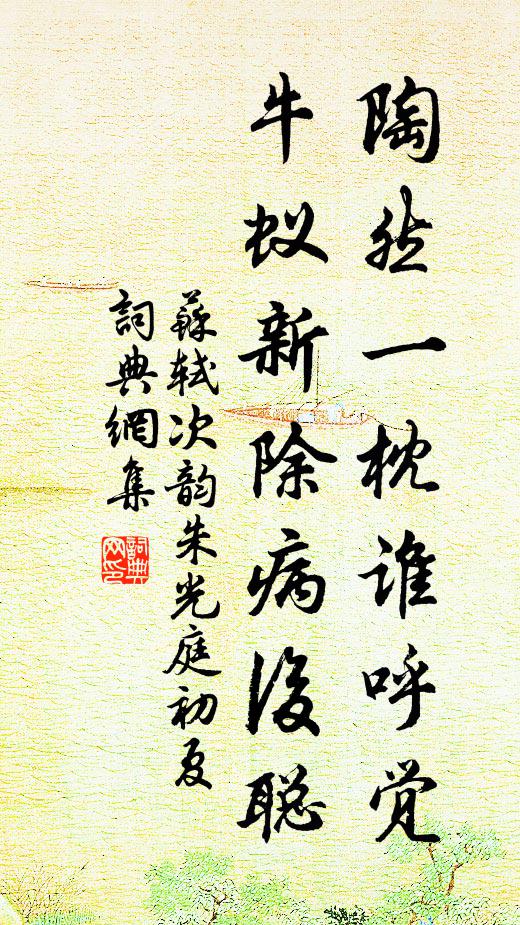 陶然一枕谁呼觉
牛蚁新除病後聪
蘇轼次韵朱光庭初夏
詞典網集
詞典网印